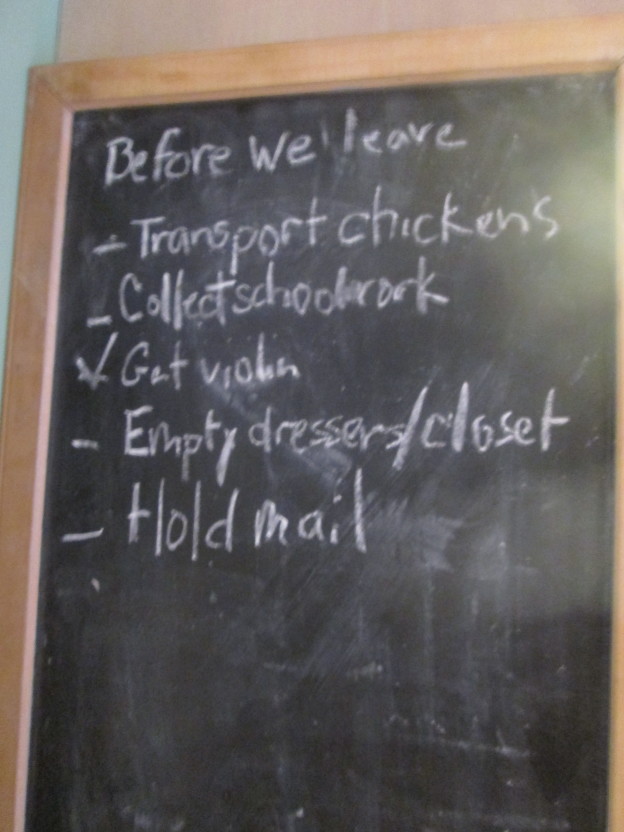 Before we leave
- Transport chickens
- Collect schoolwork
✓ Get violin
- Empty dressers/closet
- Hold mail